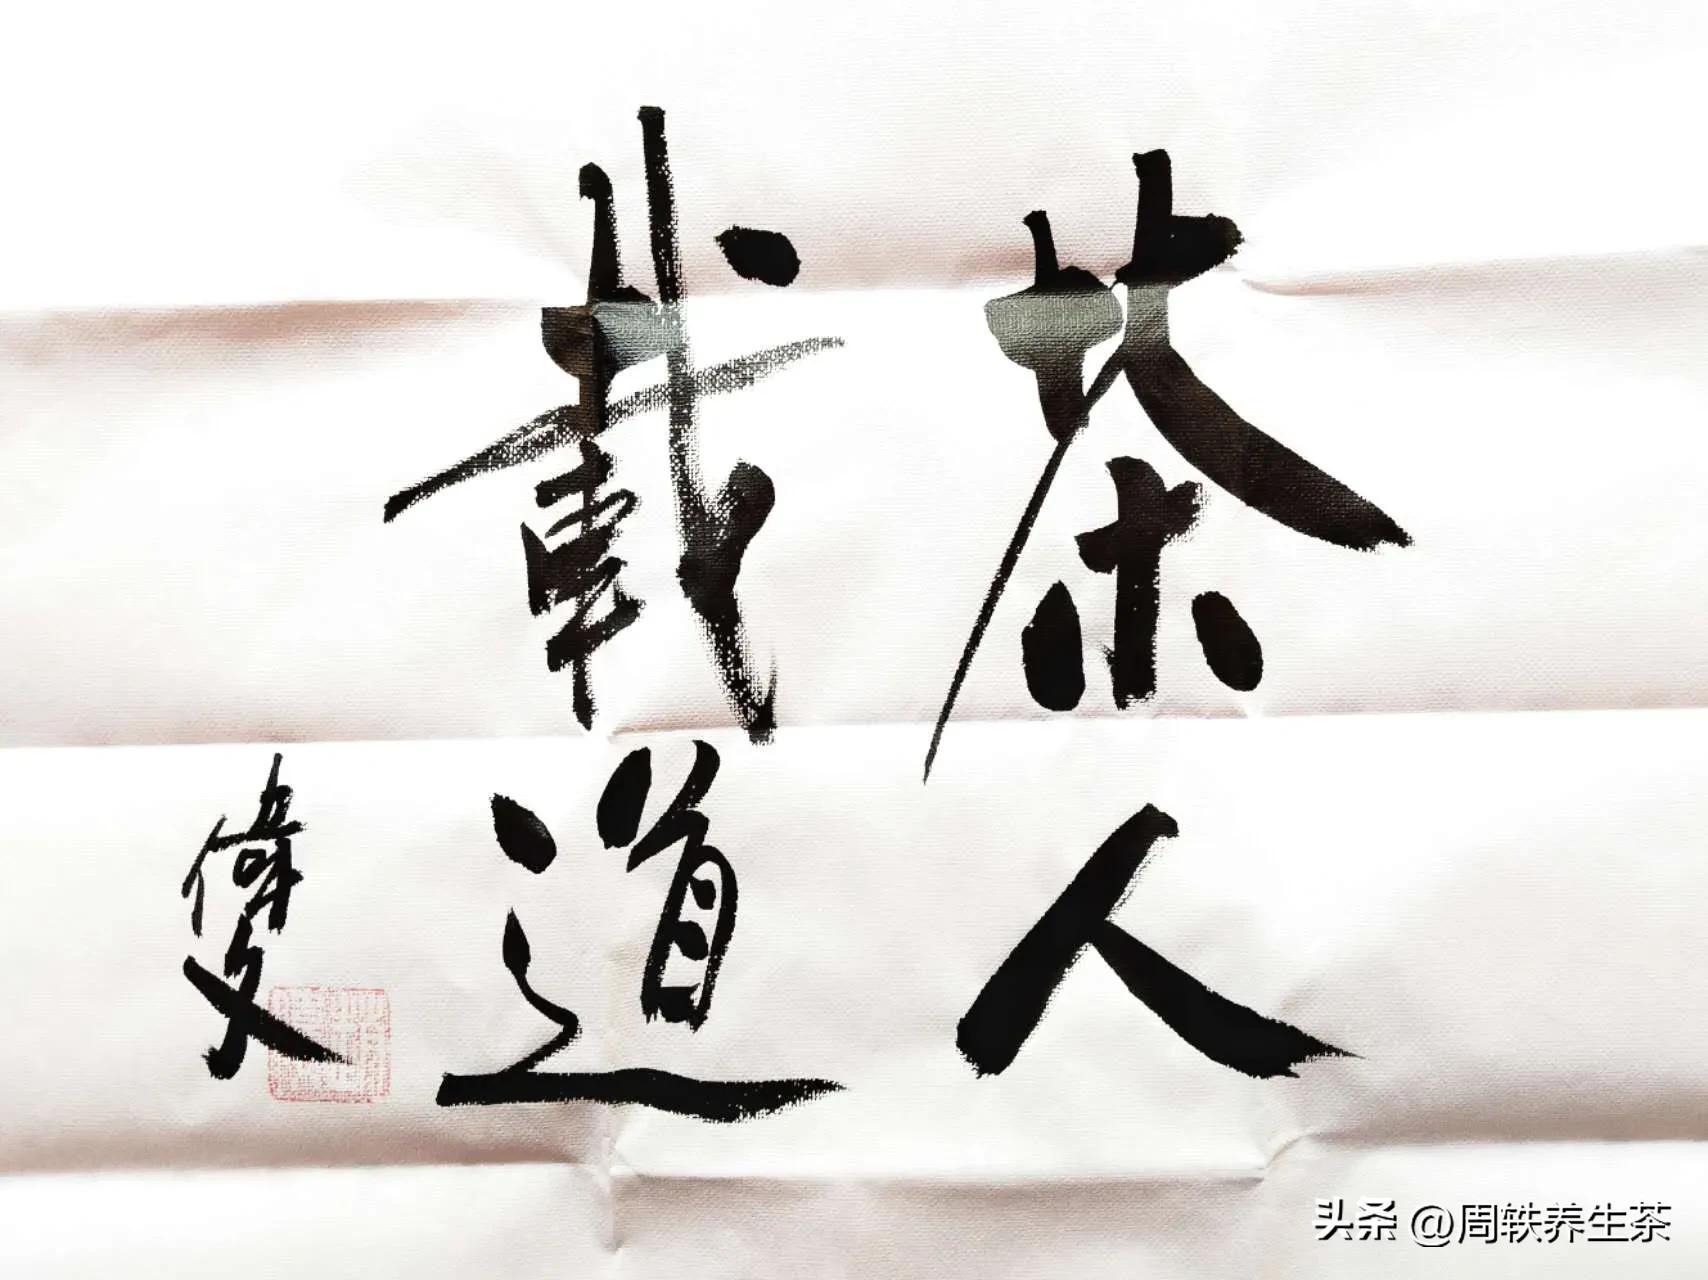 茶人
載道
偉文
头条 @周轶养生茶